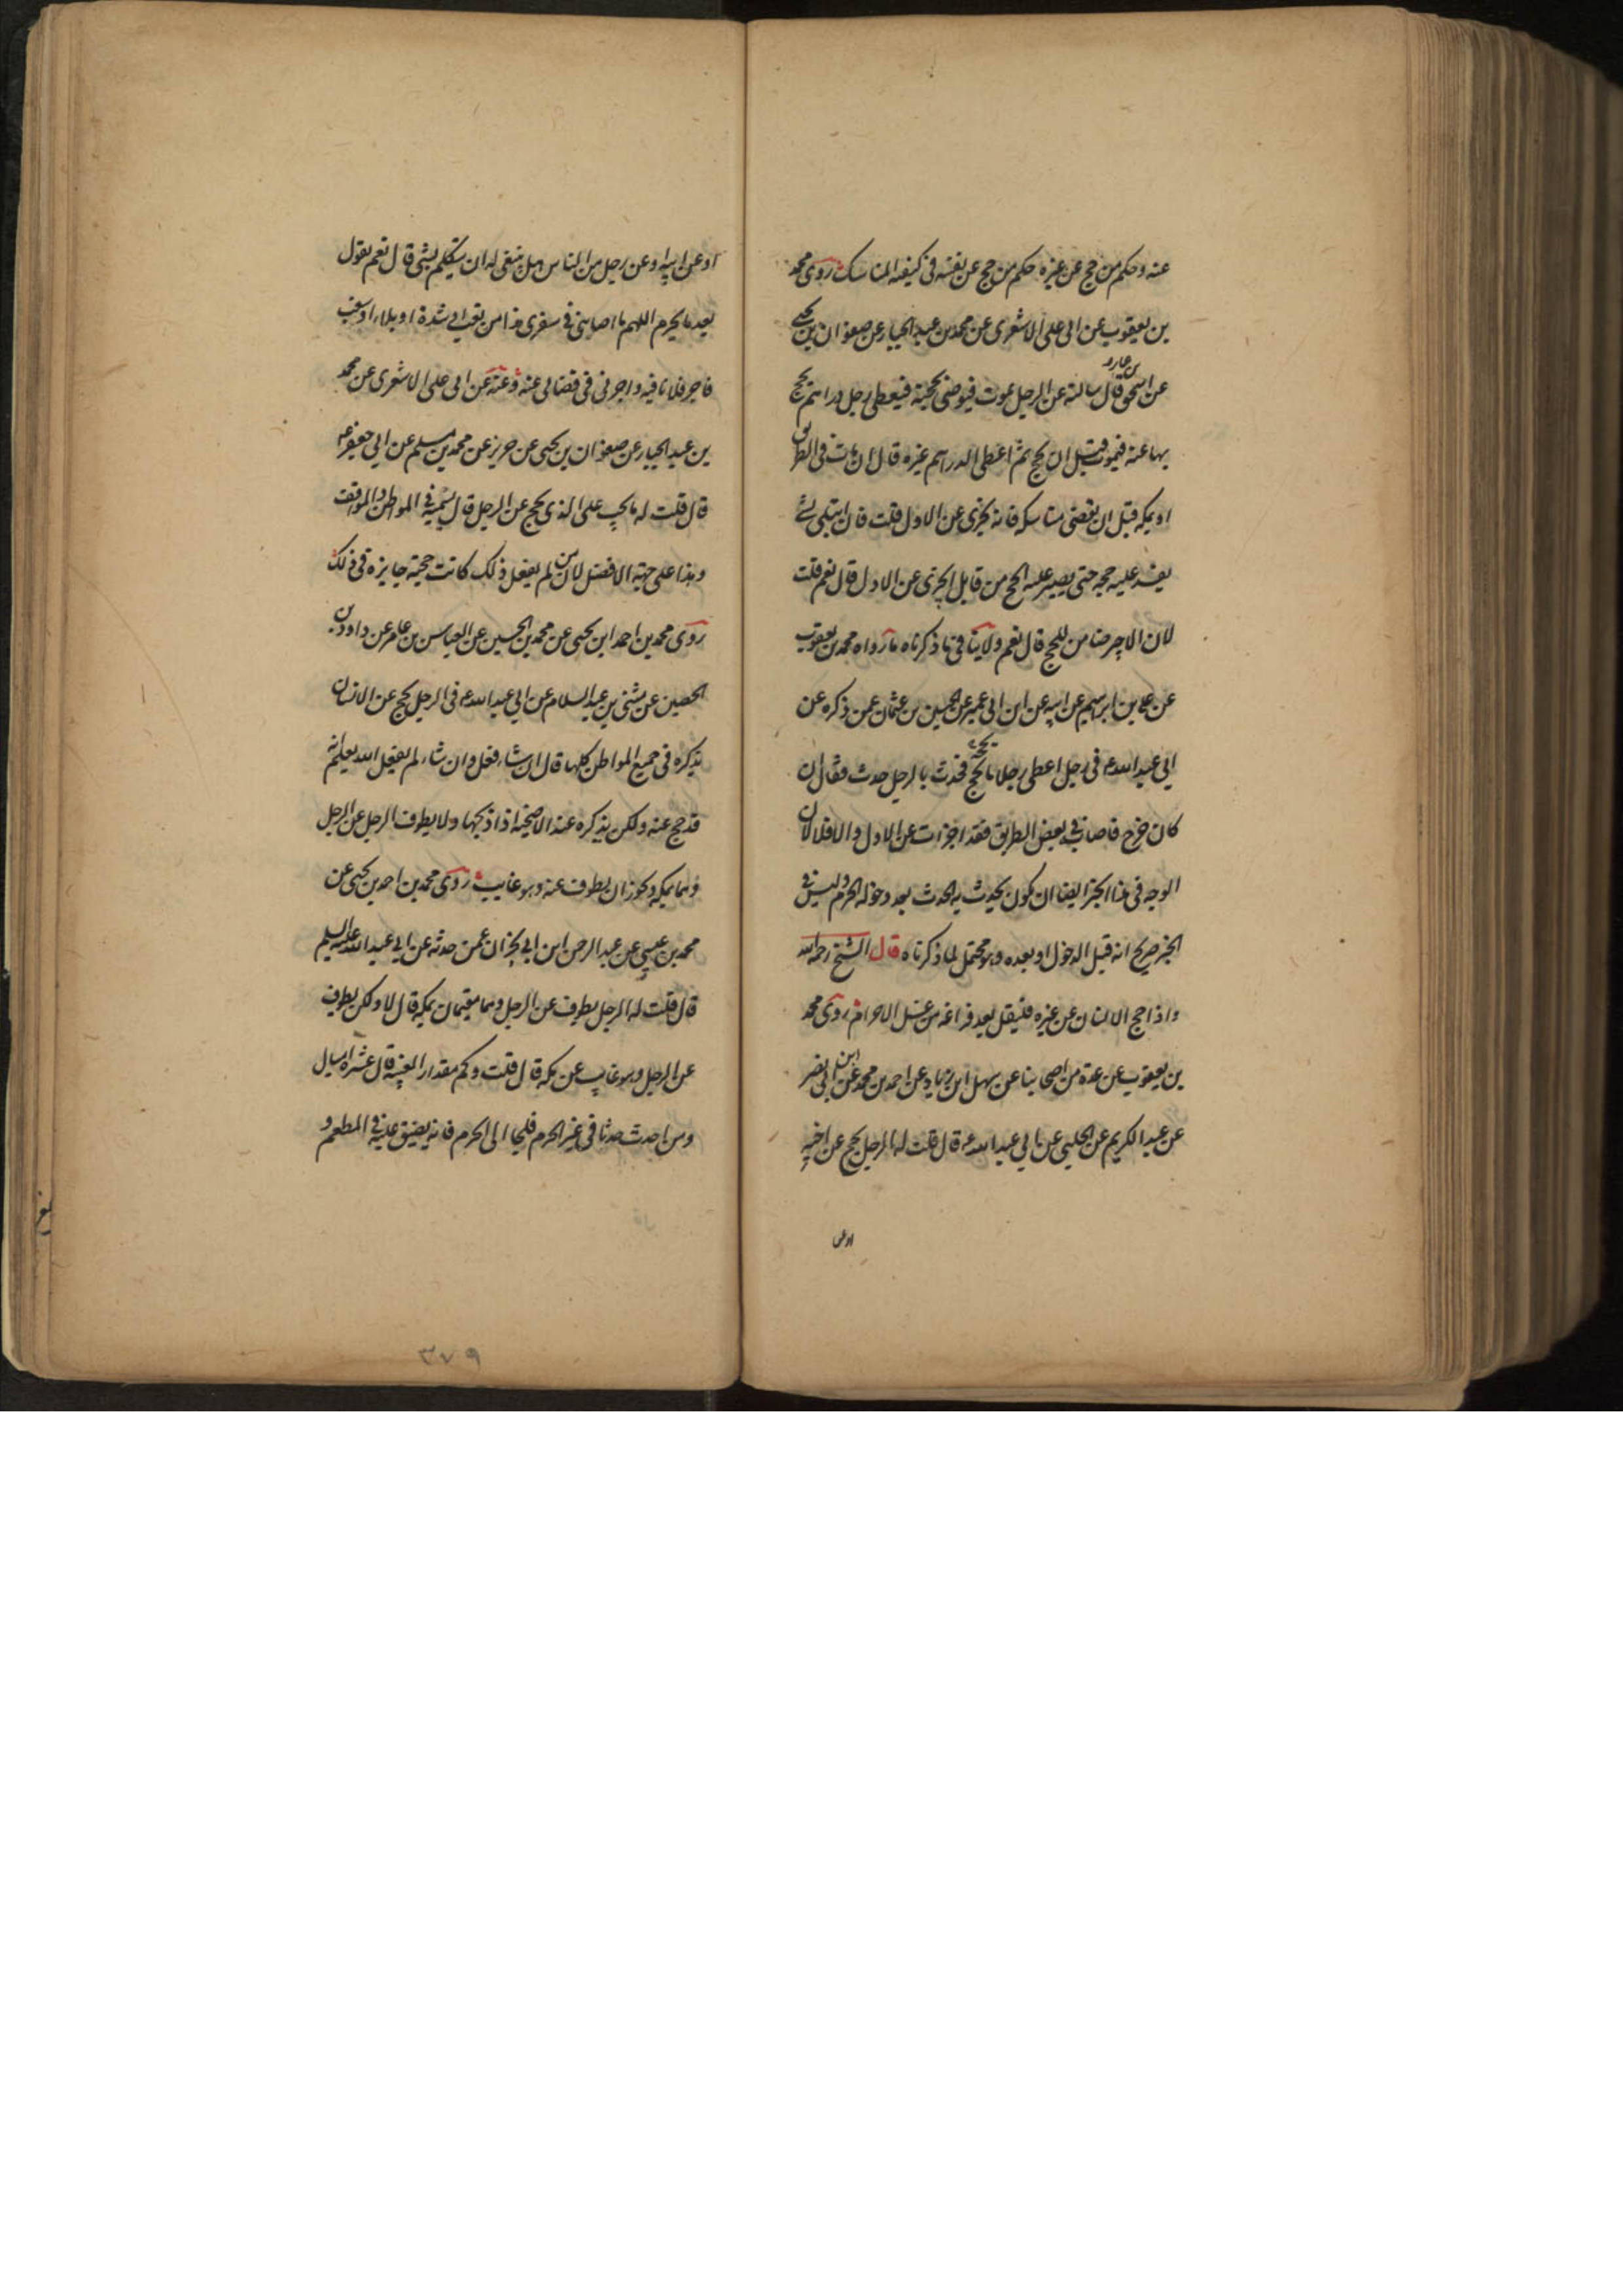 عنه وحكم من حج عن غيره حكم من حج عن نفسه فى كيفية المناسك روى محمد
بن يعقوب عن ابى على الاشعرى عن محمد بن عبد الجبار عن صفوان بن يحيى
عن اسحق بن عمار قال سالته عن الرجل يموت فيوصى بحجة فيعطى رجل دراهم يحج
بها عنه فيموت قبل ان يحج ثم اعطى الدراهم غيره قال ان مات فى الطريق
او بمكة قبل ان يقضى مناسكه فانه يجزى عن الاول قلت فان ابتلى بشئ
يفسد عليه حجه حتى يصير عليه الحج من قابل ايجزى عن الاول قال نعم قلت
لان الاجير ضامن للحج قال نعم ولا ينافى ما ذكرناه ما رواه محمد بن يعقوب
عن على بن ابرهيم عن ابيه عن ابن ابى عمير عن الحسين بن عثمان عمن ذكره عن
ابى عبد الله ع فى رجل اعطى رجلا ما يحجه فحدث بالرجل حدث فقال ان
كان خرج فاصابه فى بعض الطريق فقد اجزات عن الاول والا فلا لان
الوجه فى هذا الخبر ايضا ان يكون يحدث به الحدث بعد دخوله الحرم وليس فى
الخبر صريح انه قبل الدخول او بعده وهو محتمل لما ذكرناه قال الشيخ رحمه الله
واذا حج الانسان عن غيره فليقل بعد فراغه من غسل الاحرام روى محمد
بن يعقوب عن عدة من اصحابنا عن سهل ابن زياد عن احمد بن محمد عن ابن ابى نصر
عن عبد الكريم عن الحلبى عن ابى عبد الله ع قال قلت له الرجل يحج عن اخيه
او عن
او عن ابيه او عن رجل من الناس هل ينبغى له ان يتكلم بشئ قال نعم يقول
بعد ما يحرم اللهم ما اصابنى فى سفرى هذا من تعب او شدة او بلاء او شعث
فاجر فلانا فيه واجرنى فى قضائى عنه وعنه عن ابى على الاشعرى عن محمد
بن عبد الجبار عن صفوان بن يحيى عن حريز عن محمد بن مسلم عن ابى جعفر ع
قال قلت له ما يجب على الذى يحج عن الرجل قال يسميه فى المواطن والمواقف
وهذا على جهة الافضل لان من لم يفعل ذلك كانت حجته جايزة فى ذلك
روى محمد بن احمد ابن يحيى عن محمد بن الحسين عن العباس بن عامر عن داود بن
الحصين عن مثنى بن عبد السلام عن ابى عبد الله ع فى الرجل يحج عن الانسان
يذكره فى جميع المواطن كلها قال ان شاء فعل وان شاء لم يفعل الله يعلم انه
قد حج عنه ولكن يذكره عند الاضحية اذا ذبحها ولا يطوف الرجل عن الرجل
وهما بمكة ويجوز ان يطوف عنه وهو غايب روى محمد بن احمد بن يحيى عن
محمد بن عيسى عن عبد الرحمن ابن ابى نجران عمن حدثه عن ابى عبد الله عليه السلم
قال قلت له الرجل يطوف عن الرجل وهما مقيمان بمكة قال لا ولكن يطوف
عن الرجل وهو غايب عن مكة قال قلت وكم مقدار الغيبة قال عشرة اميال
ومن احدث حدثا فى غير الحرم فلجا الى الحرم فانه يضيق عليه فى المطعم و
۳۷۹